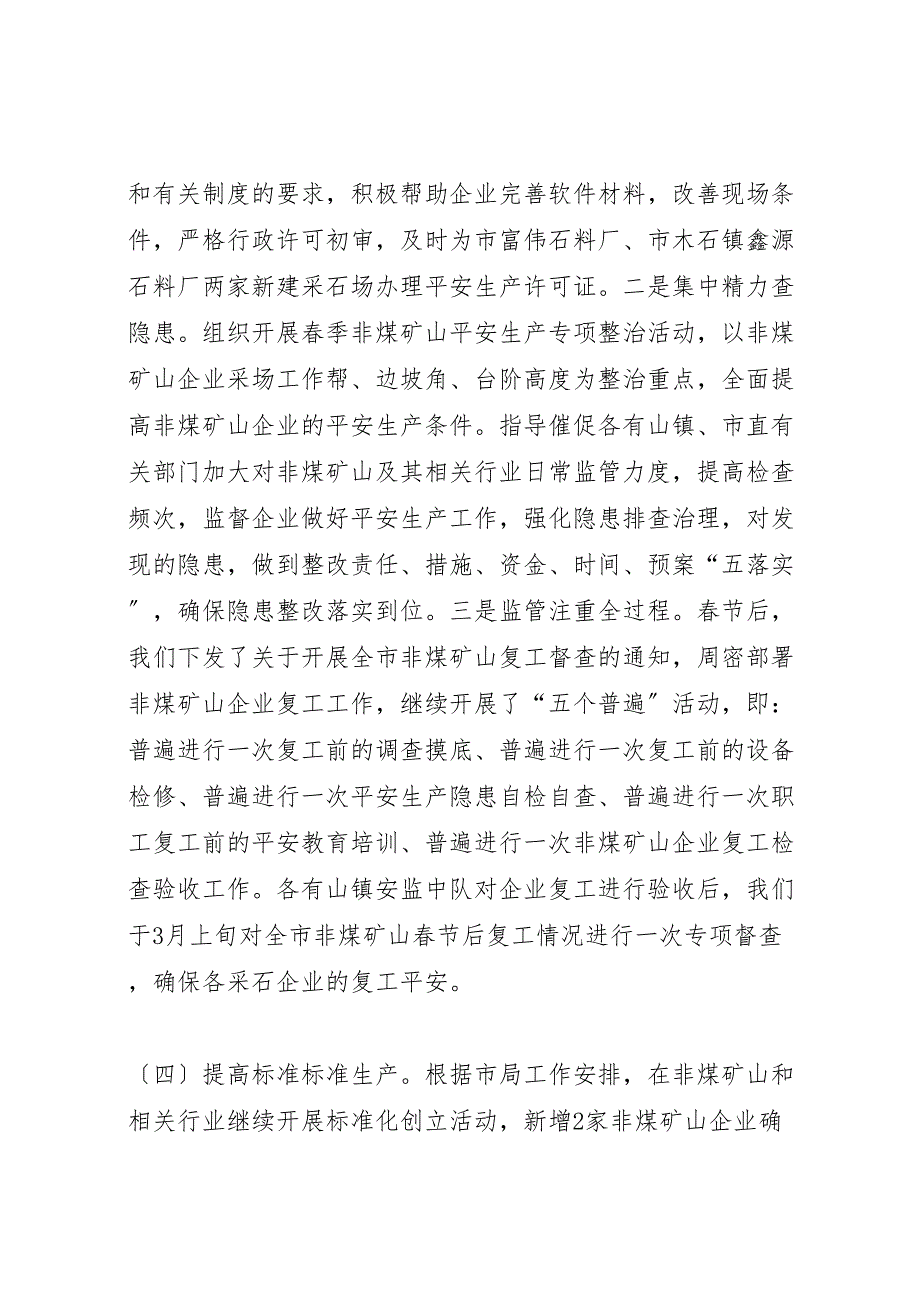 和有关制度的要求，积极帮助企业完善软件材料，改善现场条
件，严格行政许可初审，及时为市富伟石料厂、市木石镇鑫源
石料厂两家新建采石场办理平安生产许可证。二是集中精力查
隐患。组织开展春季非煤矿山平安生产专项整治活动，以非煤
矿山企业采场工作帮、边坡角、台阶高度为整治重点，全面提
高非煤矿山企业的平安生产条件。指导催促各有山镇、市直有
关部门加大对非煤矿山及其相关行业日常监管力度，提高检查
频次，监督企业做好平安生产工作，强化隐患排查治理，对发
现的隐患，做到整改责任、措施、资金、时间、预案“五落实
〞，确保隐患整改落实到位。三是监管注重全过程。春节后，
我们下发了关于开展全市非煤矿山复工督查的通知，周密部署
非煤矿山企业复工工作，继续开展了“五个普遍〞活动，即：
普遍进行一次复工前的调查摸底、普遍进行一次复工前的设备
检修、普遍进行一次平安生产隐患自检自查、普遍进行一次职
工复工前的平安教育培训、普遍进行一次非煤矿山企业复工检
查验收工作。各有山镇安监中队对企业复工进行验收后，我们
于3月上旬对全市非煤矿山春节后复工情况进行一次专项督查
，确保各采石企业的复工平安。
〔四〕提高标准标准生产。根据市局工作安排，在非煤矿山和
相关行业继续开展标准化创立活动，新增2家非煤矿山企业确